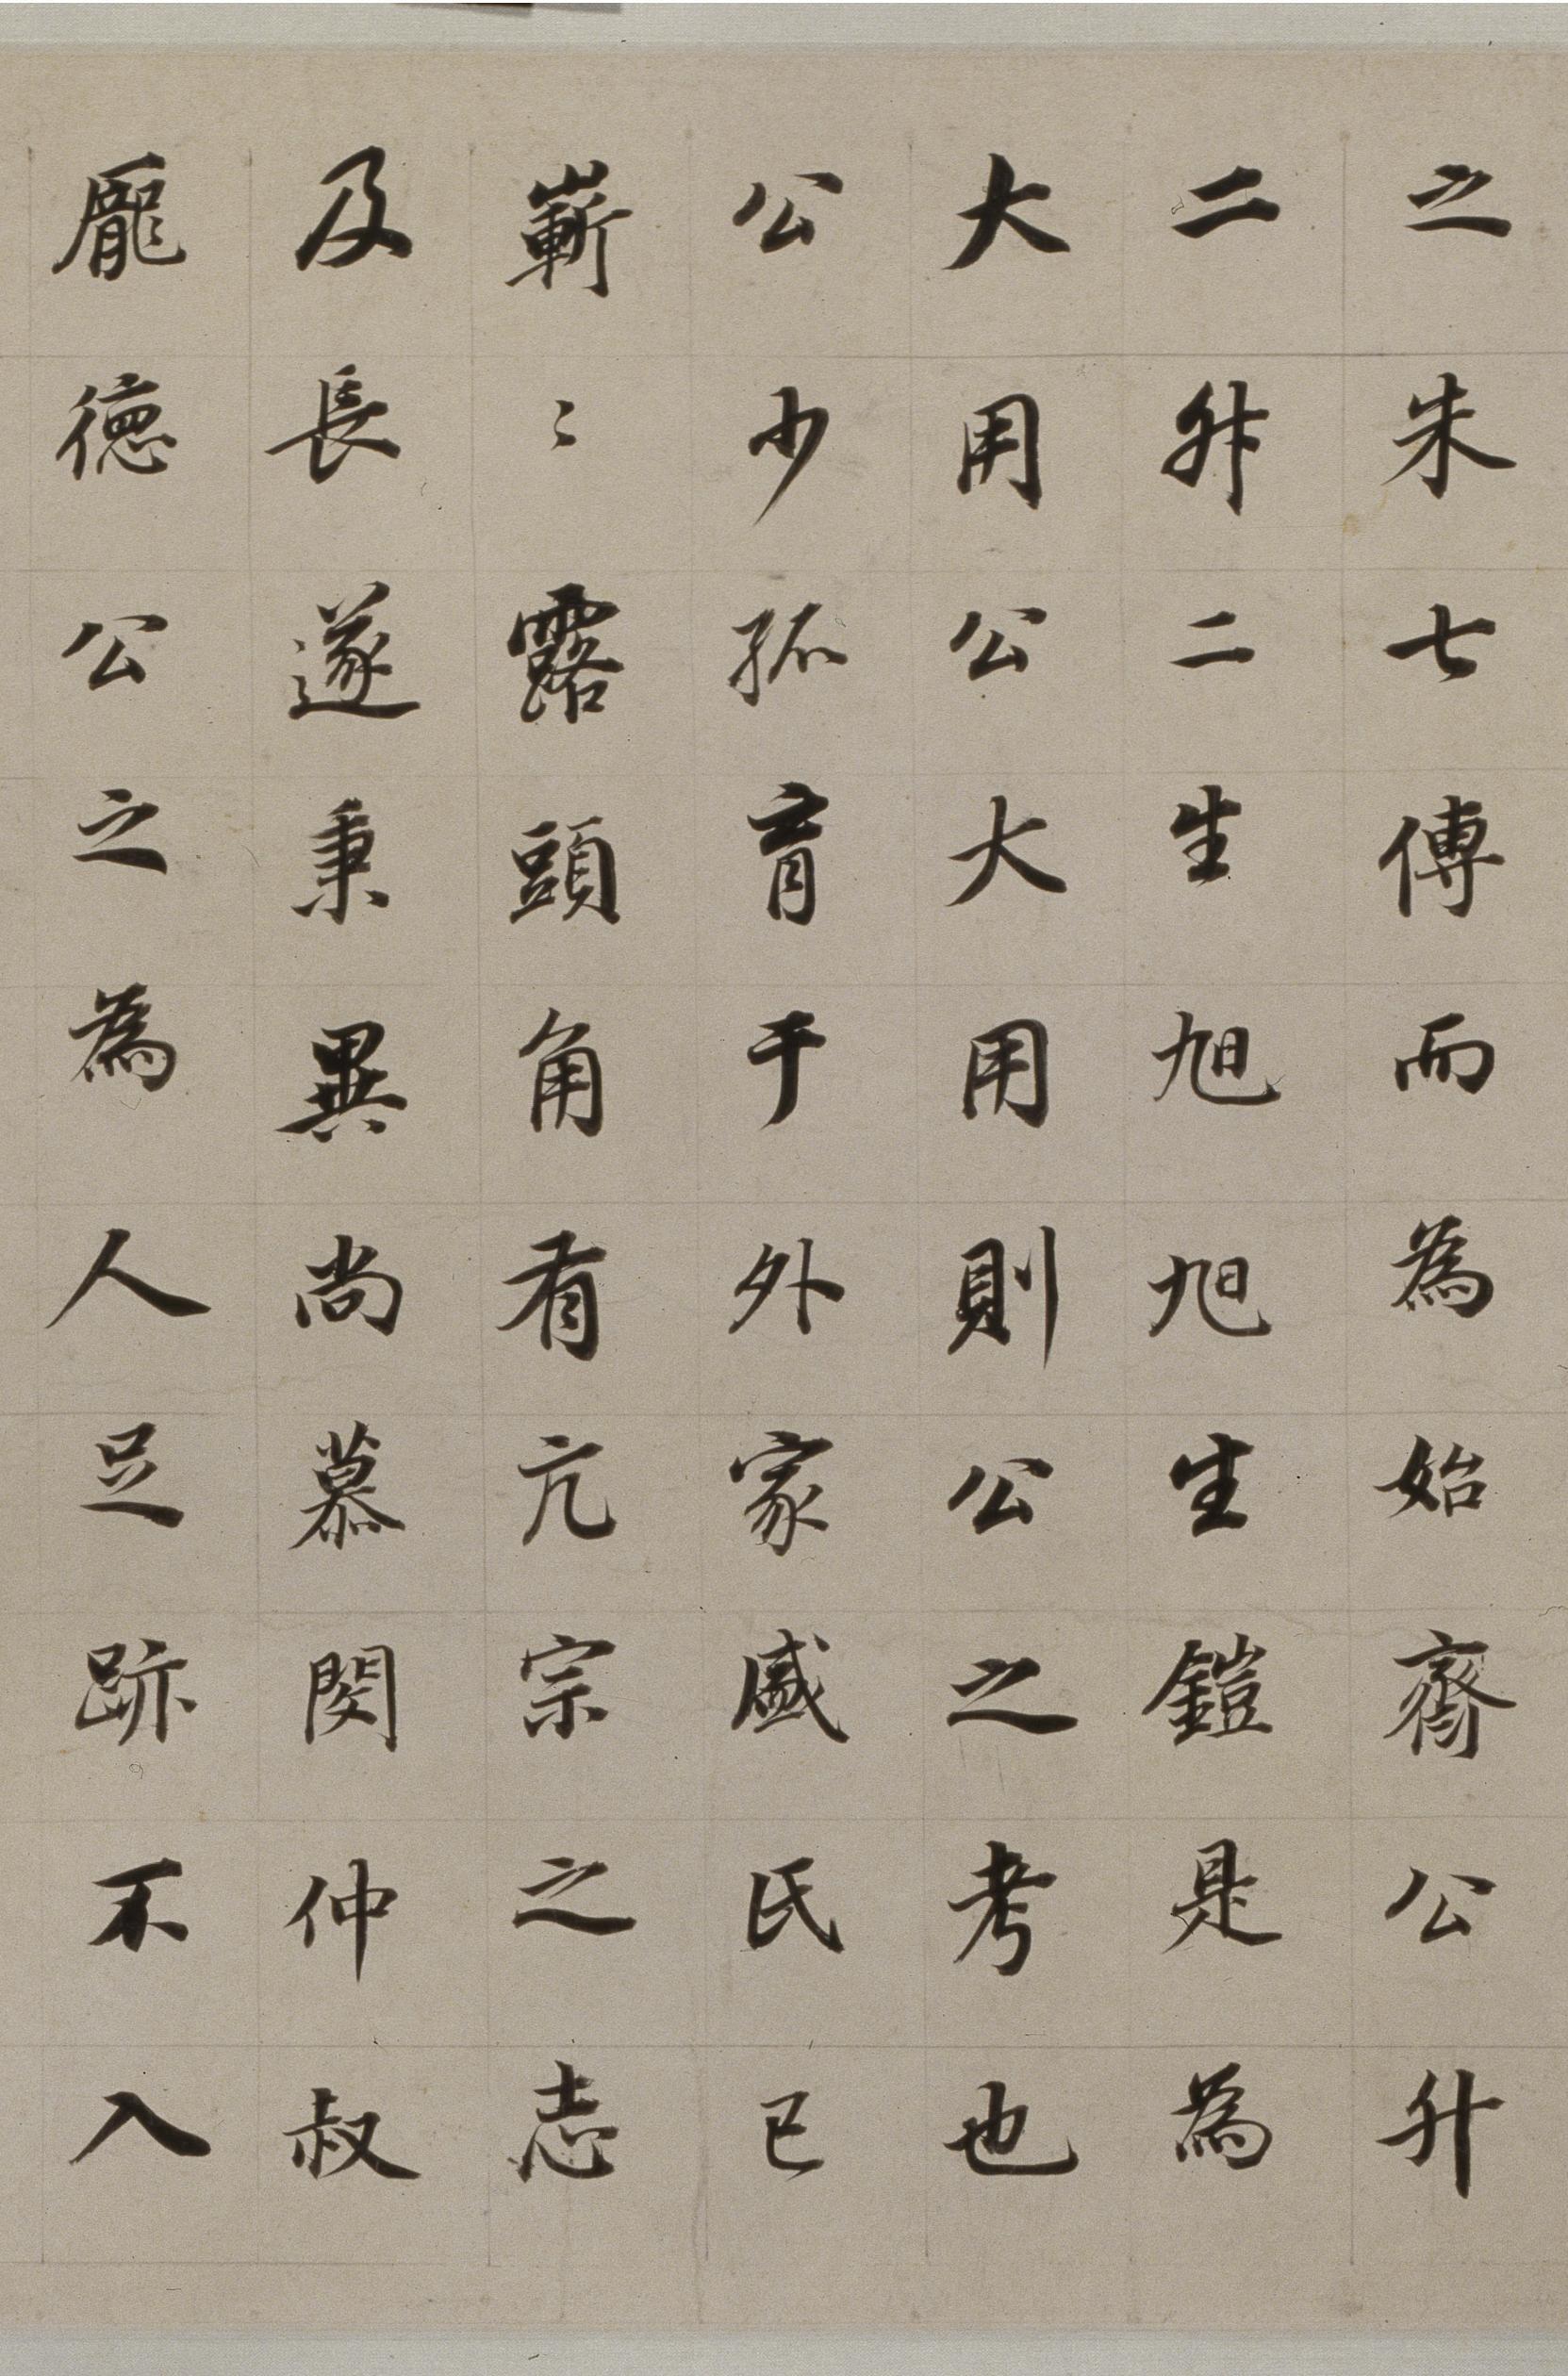 之朱七傅而為始齋公升
二升二生旭旭生鎧是為
大用公大用則公之考也
公少孤育于外家盛之氏已
嶄〻露頭角有亢宗之志
及長遂秉異尚慕閔仲叔
龐德公之為人足跡不入